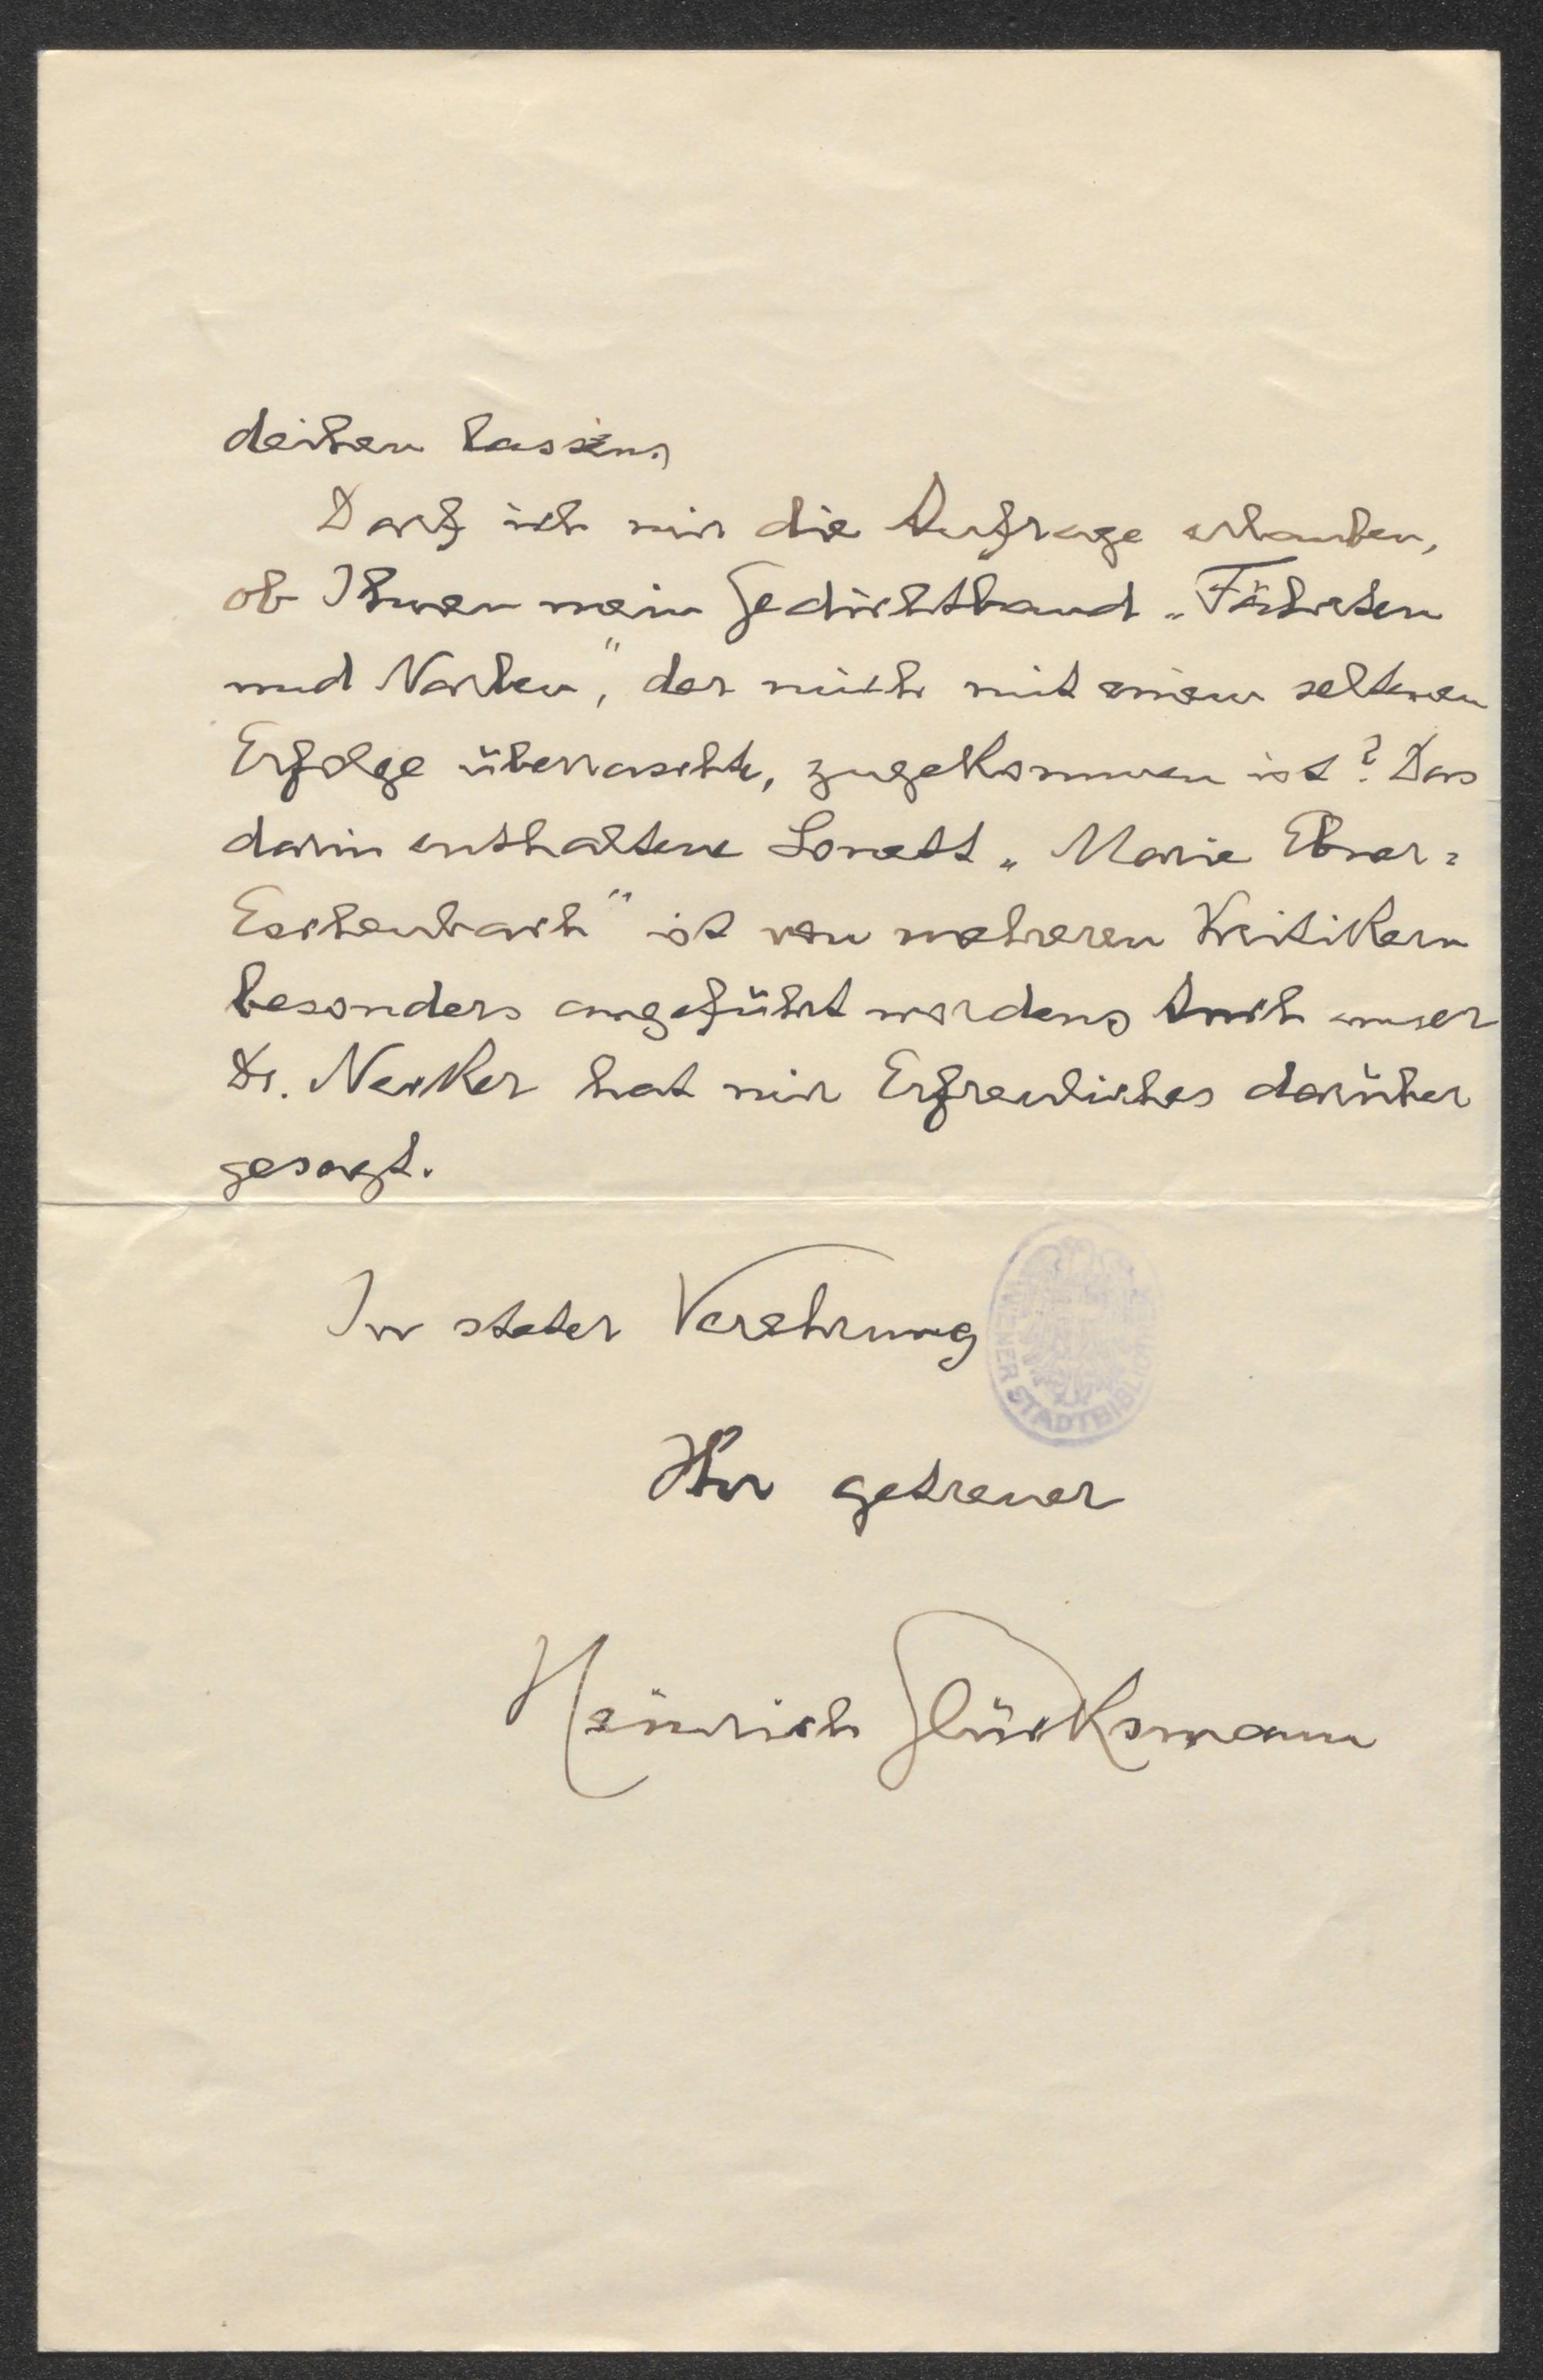 deihen lassen.
Darf ich mir die Anfrage erlauben,
ob Ihnen mein Gedichtband „Fährten
und Narben“, der mich mit einem seltenen
Erfolge überraschte, zugekommen ist? Das
darin enthaltene Sonett „Marie Ebner=
Eschenbach“ ist von mehreren Kritikern
besonders angeführt worden. Auch unser
Dr. Necker hat mir Erfreuliches darüber
gesagt.
In steter Verehrung
Ihr getreuer
Heinrich Glücksmann
STADTBIBL